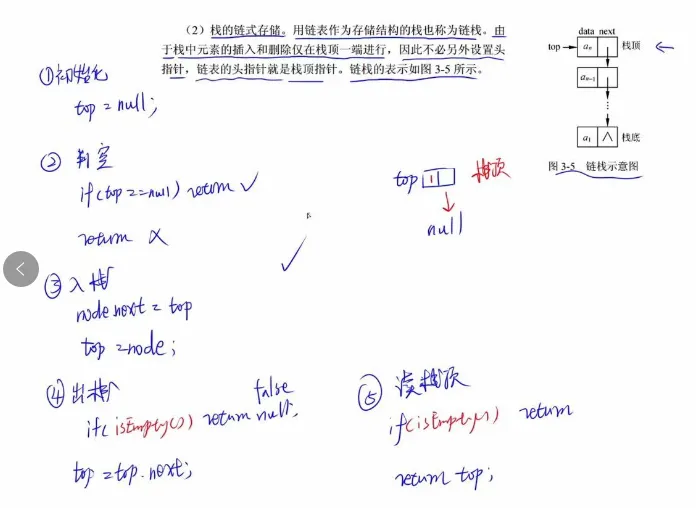 （2）栈的链式存储。用链表作为存储结构的栈也称为链栈。由
于栈中元素的插入和删除仅在栈顶一端进行，因此不必另外设置头
指针，链表的头指针就是栈顶指针。链栈的表示如图 3-5 所示。
data next
top aₙ 栈顶
aₙ₋₁
a₁ ∧ 栈底
图 3-5 链栈示意图
① 初始化
top = null;
② 判空
if(top==null) return ✓
return ×
top 1 栈顶
null
✓
③ 入栈
node.next = top
top = node;
④ 出栈
false
if(isEmpty()) return null;
top = top.next;
⑤ 读栈顶
if(isEmpty()) return
return top;